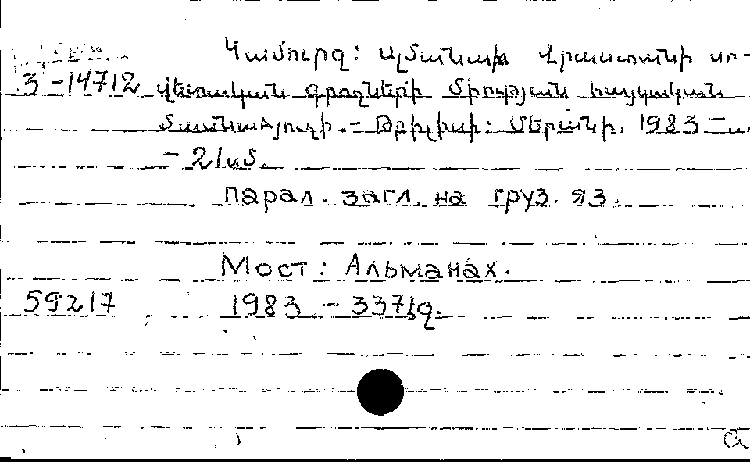 Կամուրջ: Ալմանախ Վրաստանի սո-
3-14712 վետական գրողների միության հայկական
մասնաճյուղի. - Թբիլիսի: Մերանի, 1983 -
- 21սմ.
парал. загл. на груз. яз.
Мост: Альманах.
59217 1983 - 337էջ.